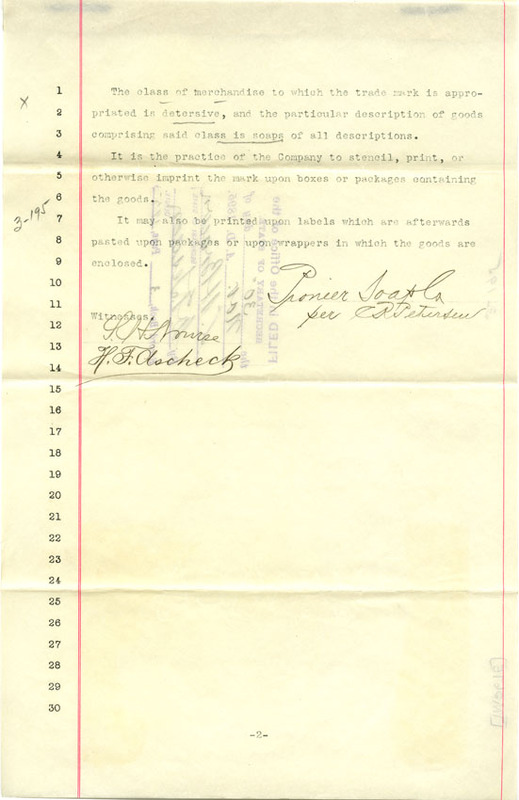 1 The class of merchandise to which the trade mark is appro-
X
2 priated is detersive, and the particular description of goods
3 comprising said class is soaps of all descriptions.
4 It is the practice of the Company to stencil, print, or
5 otherwise imprint the mark upon boxes or packages containing
6 the goods.
3-195
7 It may also be printed upon labels which are afterwards
8 pasted upon packages or upon wrappers in which the goods are
9 enclosed.
10 Pionier Soap Co
11 per Petersen
Witnesses.
12
13
14 H. F. Ascheck
15
16
17
18
19
20
21
22
23
24
25
26
27
28
29
30
-2-
FILED in the Office of the
SECRETARY OF STATE